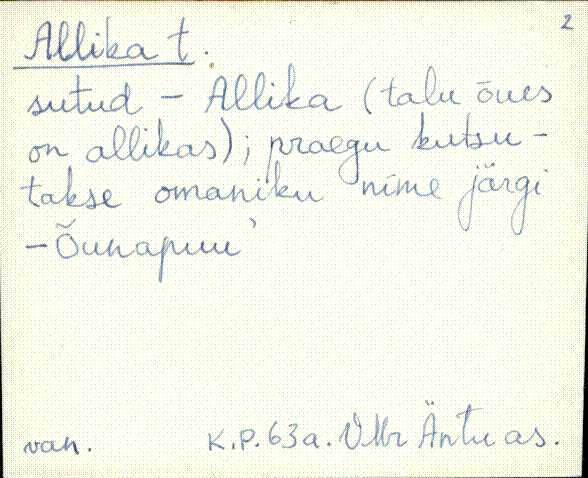 2
Allika t.
sutud – Allika (talu õues
on allikas); praegu kutsu-
takse omaniku nime järgi
– Õunapuu'
van. K.P. 63a. VMr Äntu as.